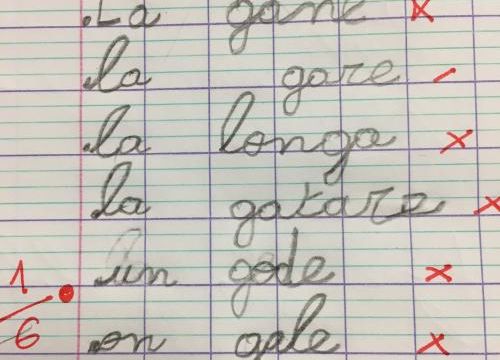 .La gant x
.la gare -
.la longa x
.la gatare x
1/6 . un gode x
.on gale x